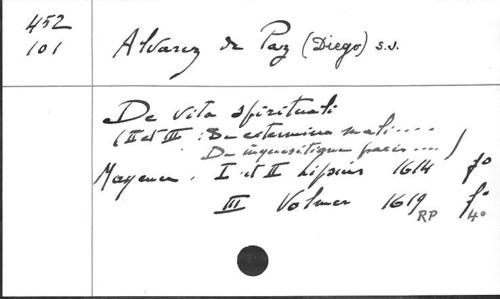 452
101
Alvarez de Paz (Diego) s.j.
De vita spirituali
(II et III : De exterminio mali....
De inquisitione pacis ....)
Mayence. I et II Lipsius 1614 fº
III Volmar 1619 fº
RP 4º